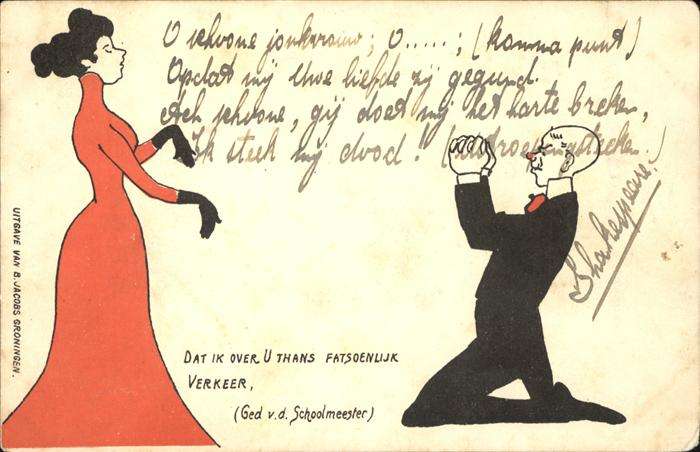 O schoone jonkvrouw; O.....; (komma punt)
Opdat mij Uwe liefde zij gegund.
Ach schoone, gij doet mij het harte breken,
Ik steek mij dood! (
Shakespeare.
DAT IK OVER U THANS FATSOENLIJK
VERKEER,
(Ged v.d. Schoolmeester)
UITGAVE VAN B. JACOBS GRONINGEN.